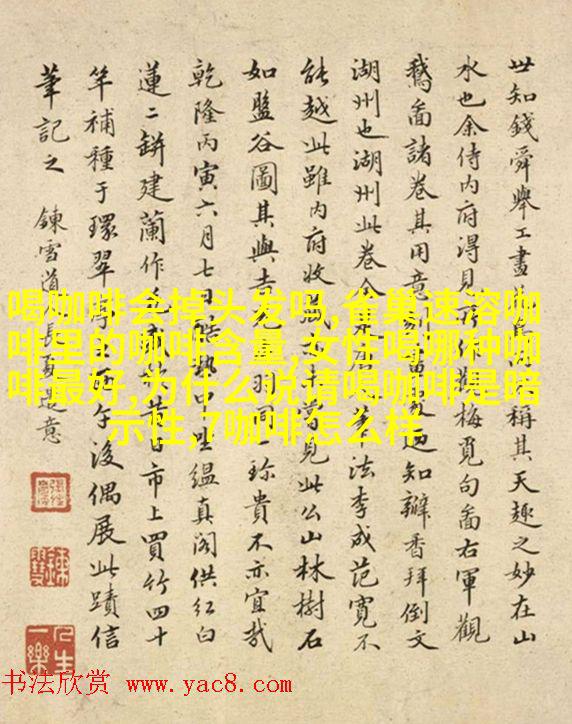 世知錢舜舉工畫稱其天趣之妙在山
水也余侍內府得見所作觀梅覓句畫右軍觀
鵝畫諸卷其用意知瓣香拜倒文
湖州也湖州此卷全法李成范寬不
能越此雖內府收藏見此公山林樹石
如盤谷圖其與吉羽同珍貴不亦宜哉
乾隆丙寅六月七日酷熱中坐縕真閣供紅白
蓮二缾建蘭作日市上買竹四十
竿補種于環翠午後偶展此蹟信
筆記之 鍊雪道長夏意
喝咖啡会掉头发吗,雀巢速溶咖
啡里的咖啡含量,女性喝哪种咖
啡最好,为什么说请喝咖啡是暗
示性,7咖啡怎么样
人生一樂
书法欣赏 www.yac8.com